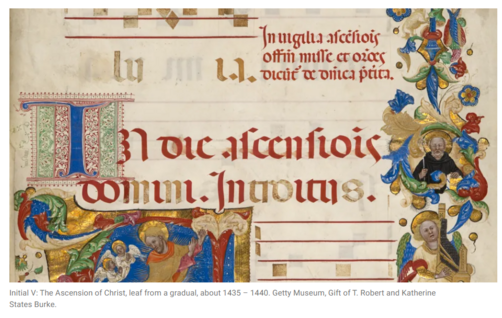 In uigilia ascēsiois
offm̄ misse et orōes
dicūt' de dn̄ica p̄tita.
In die ascensiōis
domini. Introitus.
Initial V: The Ascension of Christ, leaf from a gradual, about 1435 – 1440. Getty Museum, Gift of T. Robert and Katherine
States Burke.